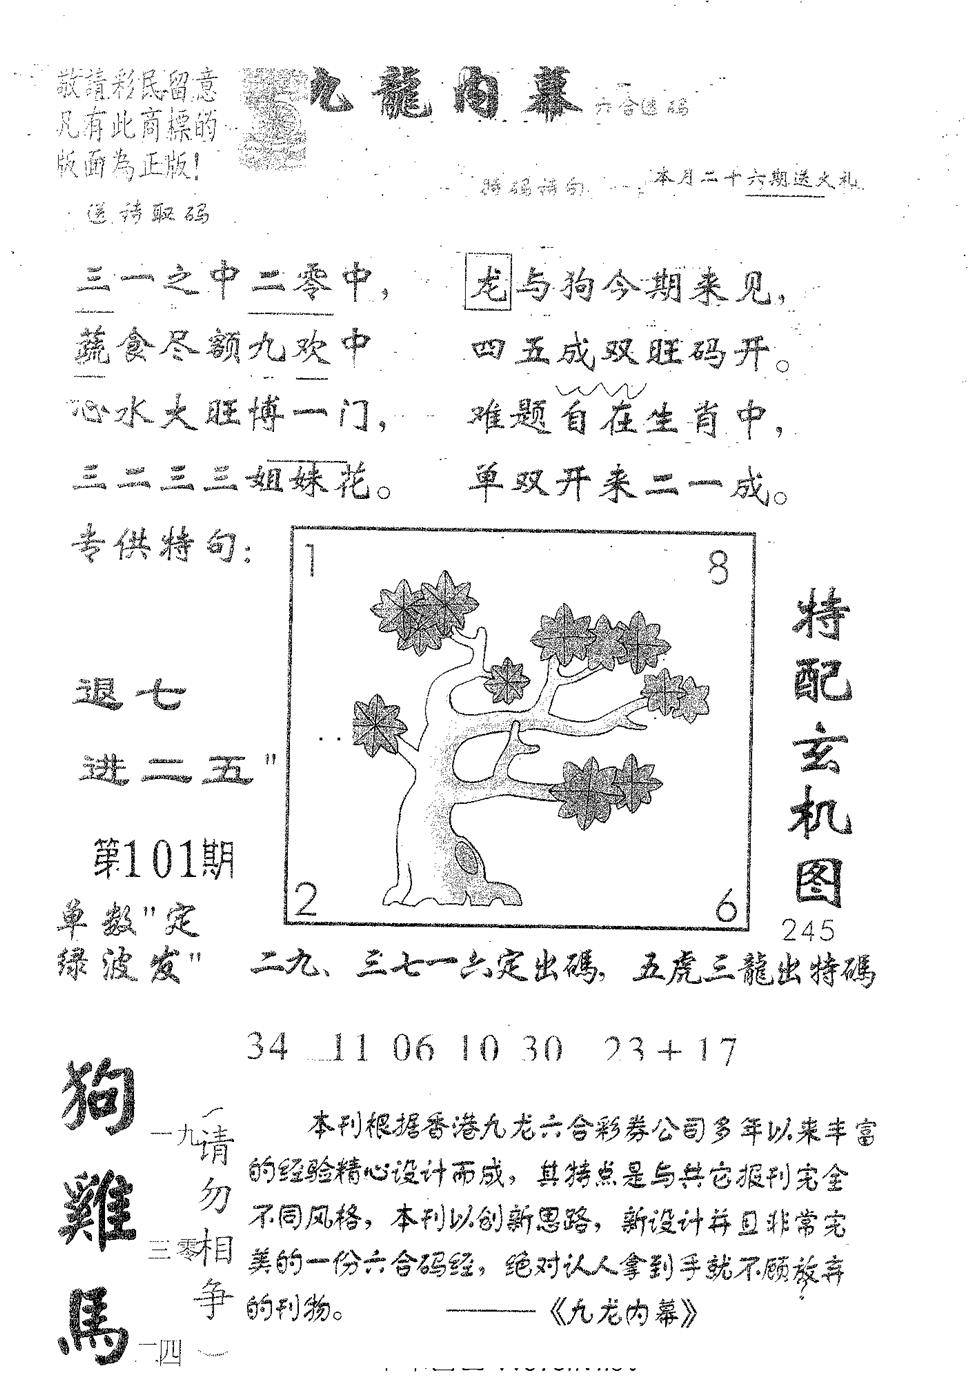 敬請彩民留意
凡有此商標的
版面為正版!
九龍内幕
六合透码
特码诗句
本月二十六期送大礼
送诗取码
三一之中二零中,
蔬食尽额九欢中
心水大旺博一门,
三二三三姐妹花。
龙与狗今期来见,
四五成双旺码开。
难题自在生肖中,
单双开来二一成。
专供特句:
退七
进二五"
第101期
单数"定
绿波发"
1
8
2
6
特配玄机图
245
二九、三七一六定出碼, 五虎三龍出特碼
34 11 06 10 30 23+17
狗
一九
雞
三零
馬
二四
(请勿相争)
本刊根据香港九龙六合彩券公司多年以来丰富
的经验精心设计而成，其特点是与其它报刊完全
不同风格，本刊以创新思路，新设计并且非常完
美的一份六合码经，绝对认人拿到手就不顾放弃
的刊物。 ———《九龙内幕》